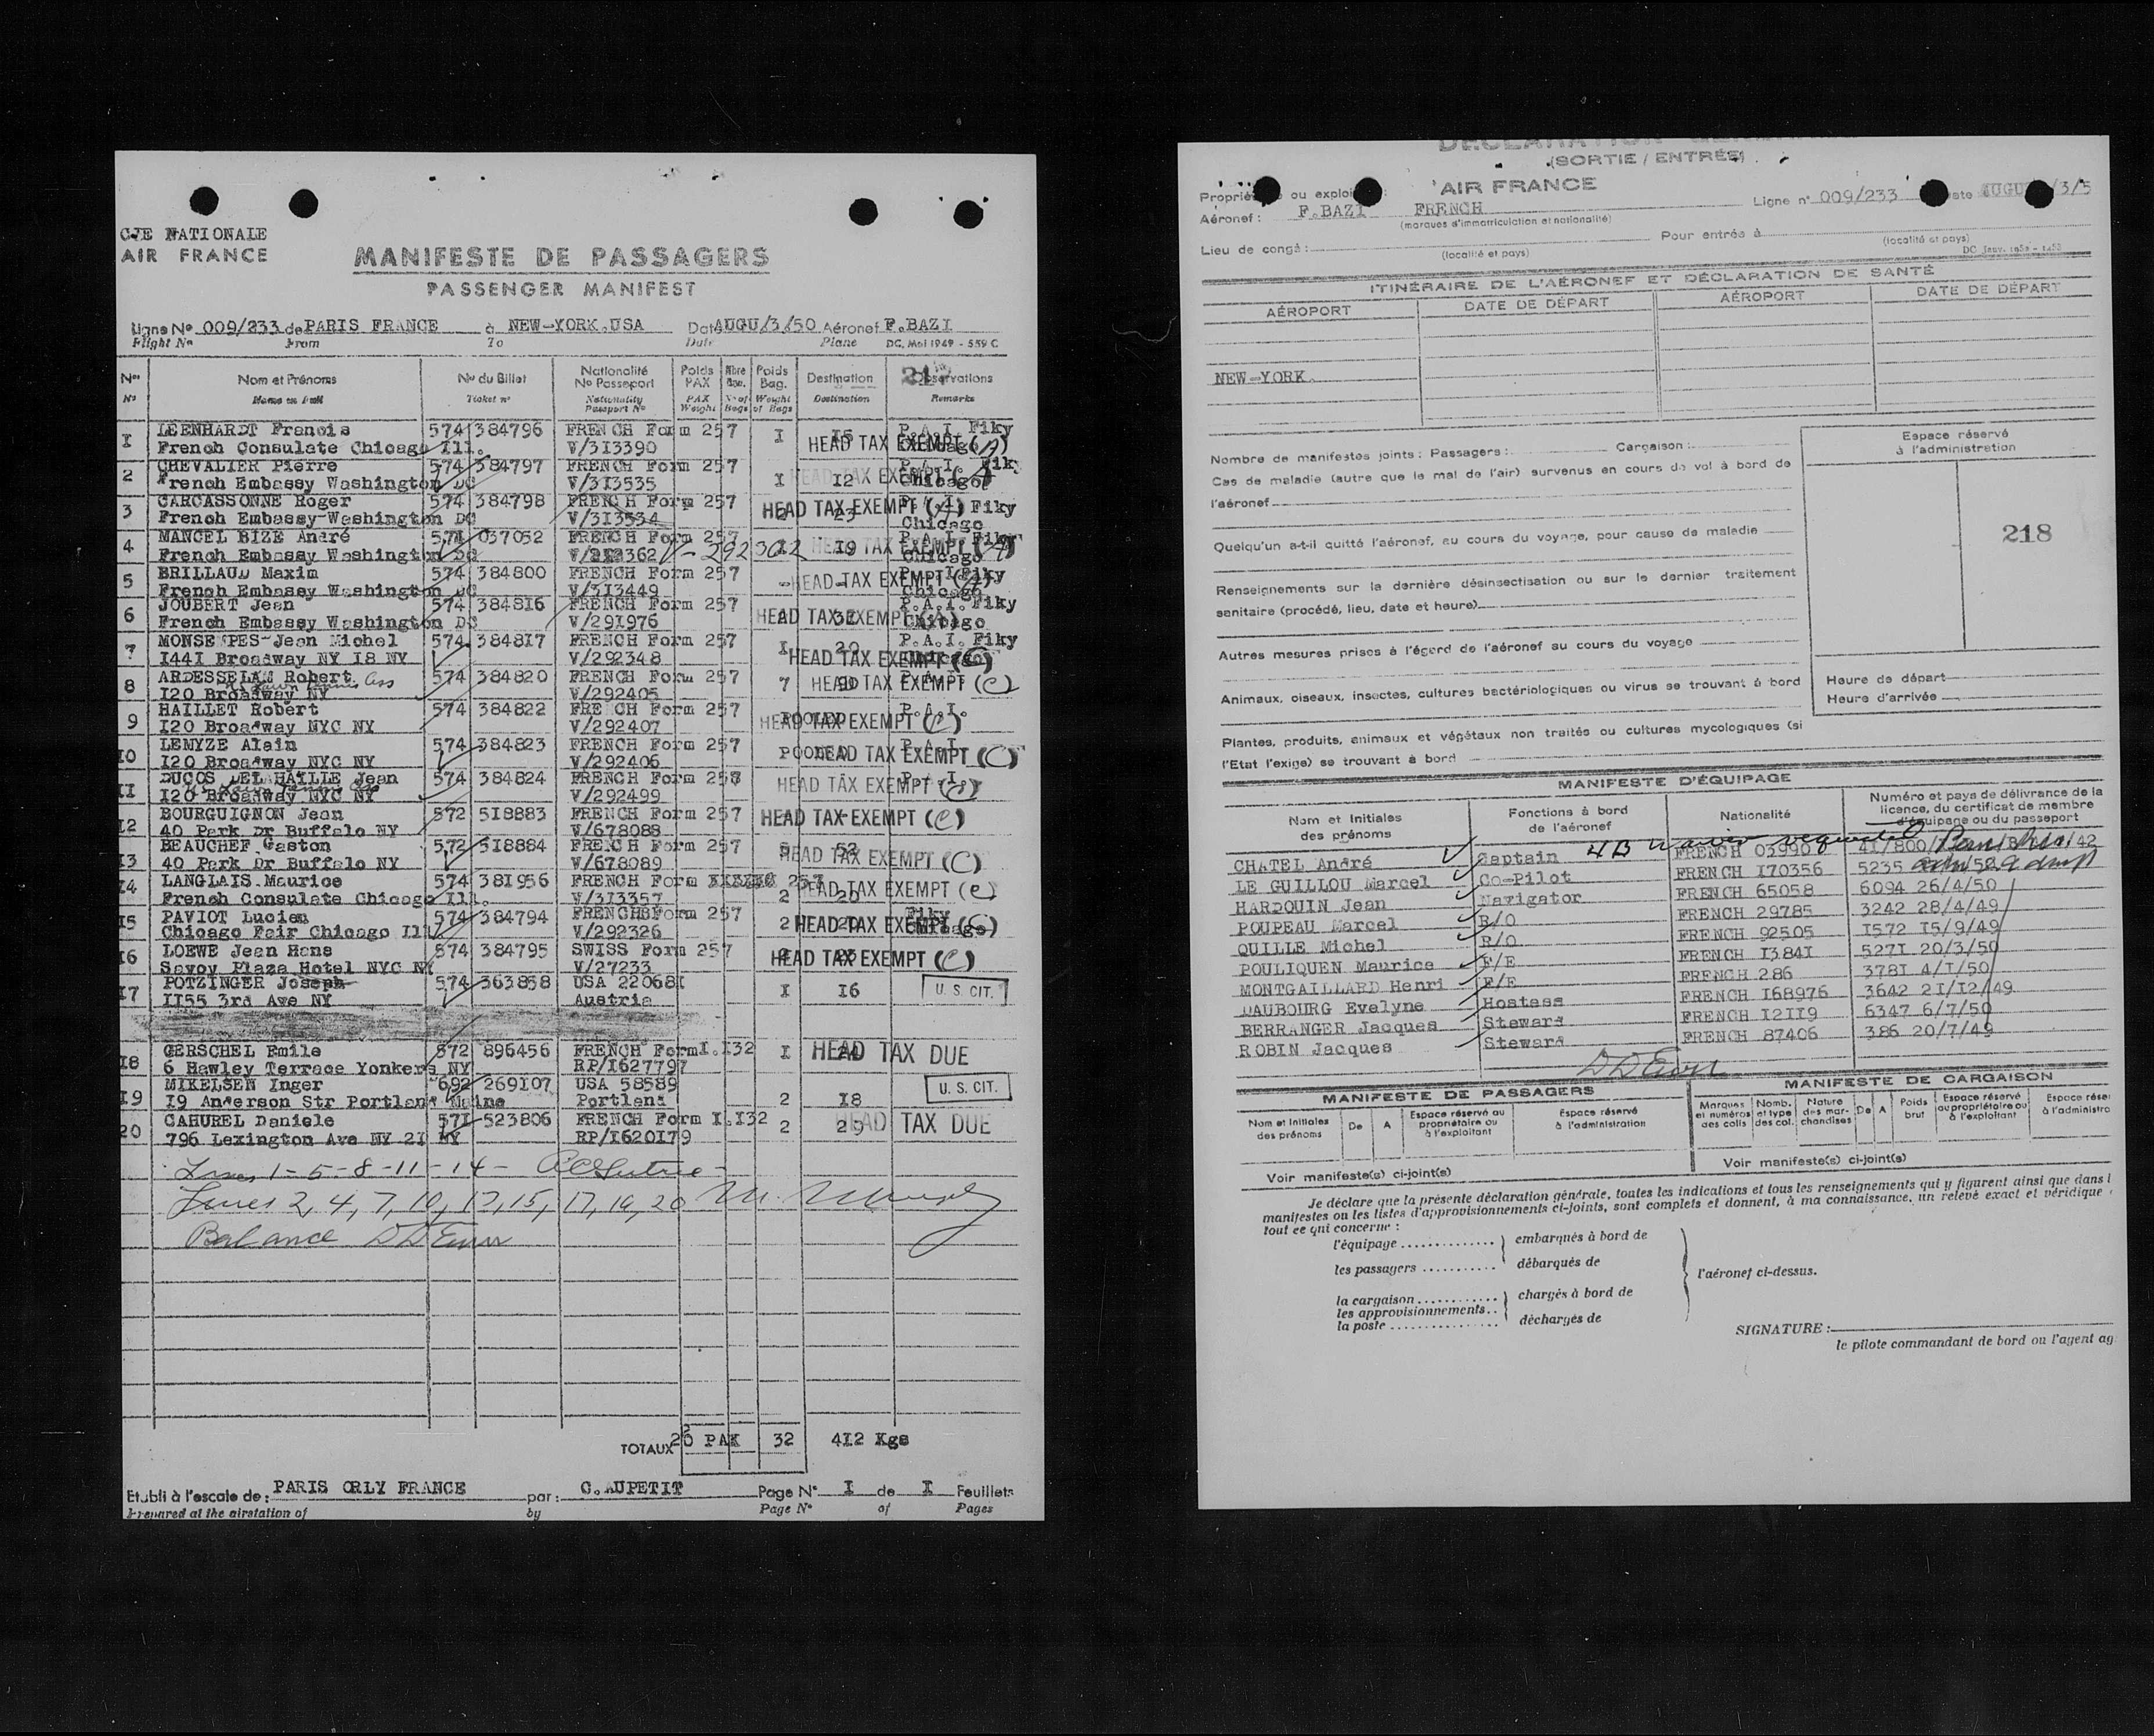 CIE NATIONALE
AIR FRANCE
MANIFESTE DE PASSAGERS
PASSENGER MANIFEST
Ligne No 009/233 de PARIS FRANCE à NEW-YORK.USA Date AUGU/3/50 Aéronef F.BAZI
Flight No From To Date Plane DC. Mai 1949 - 559 C
Nos Nom et Prénoms No du Billet Nationalité No Passeport Poids PAX Nbre Bag. Poids Bag. Destination Observations
No Name in full Ticket no Nationality Passport No PAX Weight No of Bags Weight of Bags Destination Remarks
217
I LEENHARDT Francis 574 384796 FRENCH Form 257 I 15 P.A.I. Fiky
French Consulate Chicago Ill. V/313390 HEAD TAX EXEMPT (A) Chicago
2 CHEVALIER Pierre 574 384797 FRENCH Form 257 P.A.I. Fiky
French Embassy Washington DC V/313535 I I2 HEAD TAX EXEMPT Chicago
3 CARCASSONNE Roger 574 384798 FRENCH Form 257 23 HEAD TAX EXEMPT (A) P.A.I. Fiky
French Embassy Washington DC V/313534 Chicago
4 MANCEL BIZE André 574 037052 FRENCH Form 257 P.A.I. Fiky
French Embassy Washington DC V/ V-292302 I9 HEAD TAX EXEMPT (A) Chicago
5 BRILLAUD Maxim 574 384800 FRENCH Form 257 HEAD TAX EXEMPT (A) Fiky
French Embassy Washington DC V/313449 Chicago
6 JOUBERT Jean 574 384816 FRENCH Form 257 P.A.I. Fiky
French Embassy Washington DC V/291976 HEAD TAX EXEMPT (A) Chicago
7 MONSEMPES Jean Michel 574 384817 FRENCH Form 257 I 20 P.A.I. Fiky
I44I Broadway NY I8 NY V/292348 HEAD TAX EXEMPT (C) Chicago
8 ARDESSELAM Robert 574 384820 FRENCH Form 257 7 90 HEAD TAX EXEMPT (C)
I20 Broadway NY V/292405
9 HAILLET Robert 574 384822 FRENCH Form 257 P.A.I.
I20 Broadway NYC NY V/292407 POOLED HEAD TAX EXEMPT (C)
I0 LEMYZE Alain 574 384823 FRENCH Form 257 P.A.I.
I20 Broadway NYC NY V/292406 POOLED HEAD TAX EXEMPT (C)
II DUCOS DELAHAILLE Jean 574 384824 FRENCH Form 258 P.A.I.
I20 Broadway NYC NY V/292499 HEAD TAX EXEMPT (C)
I2 BOURGUIGNON Jean 572 518883 FRENCH Form 257 HEAD TAX EXEMPT (C)
40 Park Dr Buffalo NY V/678088
I3 BEAUCHEF Gaston 572 518884 FRENCH Form 257 52
40 Park Dr Buffalo NY V/678089 HEAD TAX EXEMPT (C)
I4 LANGLAIS Maurice 574 381956 FRENCH Form 257 HEAD TAX EXEMPT (C)
French Consulate Chicago Ill. V/313357 2 20
I5 PAVIOT Lucien 574 384794 FRENCH Form 257 Fiky
Chicago Fair Chicago Ill V/292326 2 HEAD TAX EXEMPT (C) Chicago
I6 LOEWE Jean Hans 574 384795 SWISS Form 257 HEAD TAX EXEMPT (C)
Savoy Plaza Hotel NYC NY V/27233
I7 POTZINGER Joseph 574 363858 USA 220681 I I6 U. S. CIT.
II55 3rd Ave NY Austria
I8 GERSCHEL Emile 572 896456 FRENCH Form I.I32 I HEAD TAX DUE
6 Hawley Terrace Yonkers NY RP/I627797
I9 MIKELSEN Inger 692 269107 USA 58589 U. S. CIT.
I9 Anderson Str Portland Maine Portland 2 I8
20 CAHUREL Daniele 571 523806 FRENCH Form I.I32 2 29 HEAD TAX DUE
796 Lexington Ave NY 2I NY RP/I620I79
Lines 1-5-8-11-14-
Lines 2, 4, 7, 10, 13, 15, 17, 19, 20 M.
Balance
TOTAUX 20 PAX 32 412 Kgs
Etabli à l'escale de : PARIS ORLY FRANCE par : C.AUPETIT Page No I de I Feuillets
Prepared at the airstation of by Page No of Pages
(SORTIE / ENTRÉE)
AIR FRANCE
Ligne no 009/233
Aéronef : F.BAZI FRENCH
(marques d'immatriculation et nationalité)
Lieu de congé : Pour entrée à
(localité et pays) (localité et pays)
ITINÉRAIRE DE L'AÉRONEF ET DÉCLARATION DE SANTÉ
AÉROPORT DATE DE DÉPART AÉROPORT DATE DE DÉPART
NEW-YORK.
Nombre de manifestes joints : Passagers : Cargaison :
Espace réservé
à l'administration
Cas de maladie (autre que le mal de l'air) survenus en cours de vol à bord de
l'aéronef
218
Quelqu'un a-t-il quitté l'aéronef, au cours du voyage, pour cause de maladie
Renseignements sur la dernière désinsectisation ou sur le dernier traitement
sanitaire (procédé, lieu, date et heure)
Autres mesures prises à l'égard de l'aéronef au cours du voyage
Animaux, oiseaux, insectes, cultures bactériologiques ou virus se trouvant à bord
Heure de départ
Heure d'arrivée
Plantes, produits, animaux et végétaux non traités ou cultures mycologiques (si
l'Etat l'exige) se trouvant à bord
MANIFESTE D'ÉQUIPAGE
Nom et Initiales des prénoms Fonctions à bord de l'aéronef Nationalité Numéro et pays de délivrance de la licence, du certificat de membre d'équipage ou du passeport
4B waiver requested
CHATEL André Captain FRENCH 039907
LE GUILLOU Marcel Co-Pilot FRENCH I70356 5235
HARDOUIN Jean Navigator FRENCH 65058 6094 26/4/50
POUPEAU Marcel R/O FRENCH 29785 3242 28/4/49
QUILLE Michel R/O FRENCH 92505 I572 I5/9/49
POULIQUEN Maurice F/E FRENCH I3841 5271 20/3/50
MONTGAILLARD Henri F/E FRENCH 286 3781 4/I/50
DAUBOURG Evelyne Hostess FRENCH I68976 3642 2I/I2/49
BERRANGER Jacques Steward FRENCH I2II9 6347 6/7/50
ROBIN Jacques Steward FRENCH 87406 386 20/7/49
MANIFESTE DE PASSAGERS MANIFESTE DE CARGAISON
Nom et Initiales des prénoms De A Espace réservé au propriétaire ou à l'exploitant Espace réservé à l'administration Marques et numéros des colis Nomb. et type des col. Nature des mar-chandises De A Poids brut Espace réservé au propriétaire ou à l'exploitant
Voir manifeste(s) ci-joint(s) Voir manifeste(s) ci-joint(s)
Je déclare que la présente déclaration générale, toutes les indications et tous les renseignements qui y figurent ainsi que dans l
manifestes ou les listes d'approvisionnements ci-joints, sont complets et donnent, à ma connaissance, un relevé exact et véridique
tout ce qui concerne :
l'équipage embarqués à bord de
les passagers débarqués de
l'aéronef ci-dessus.
la cargaison chargés à bord de
les approvisionnements
la poste déchargés de
SIGNATURE :
le pilote commandant de bord ou l'agent ag